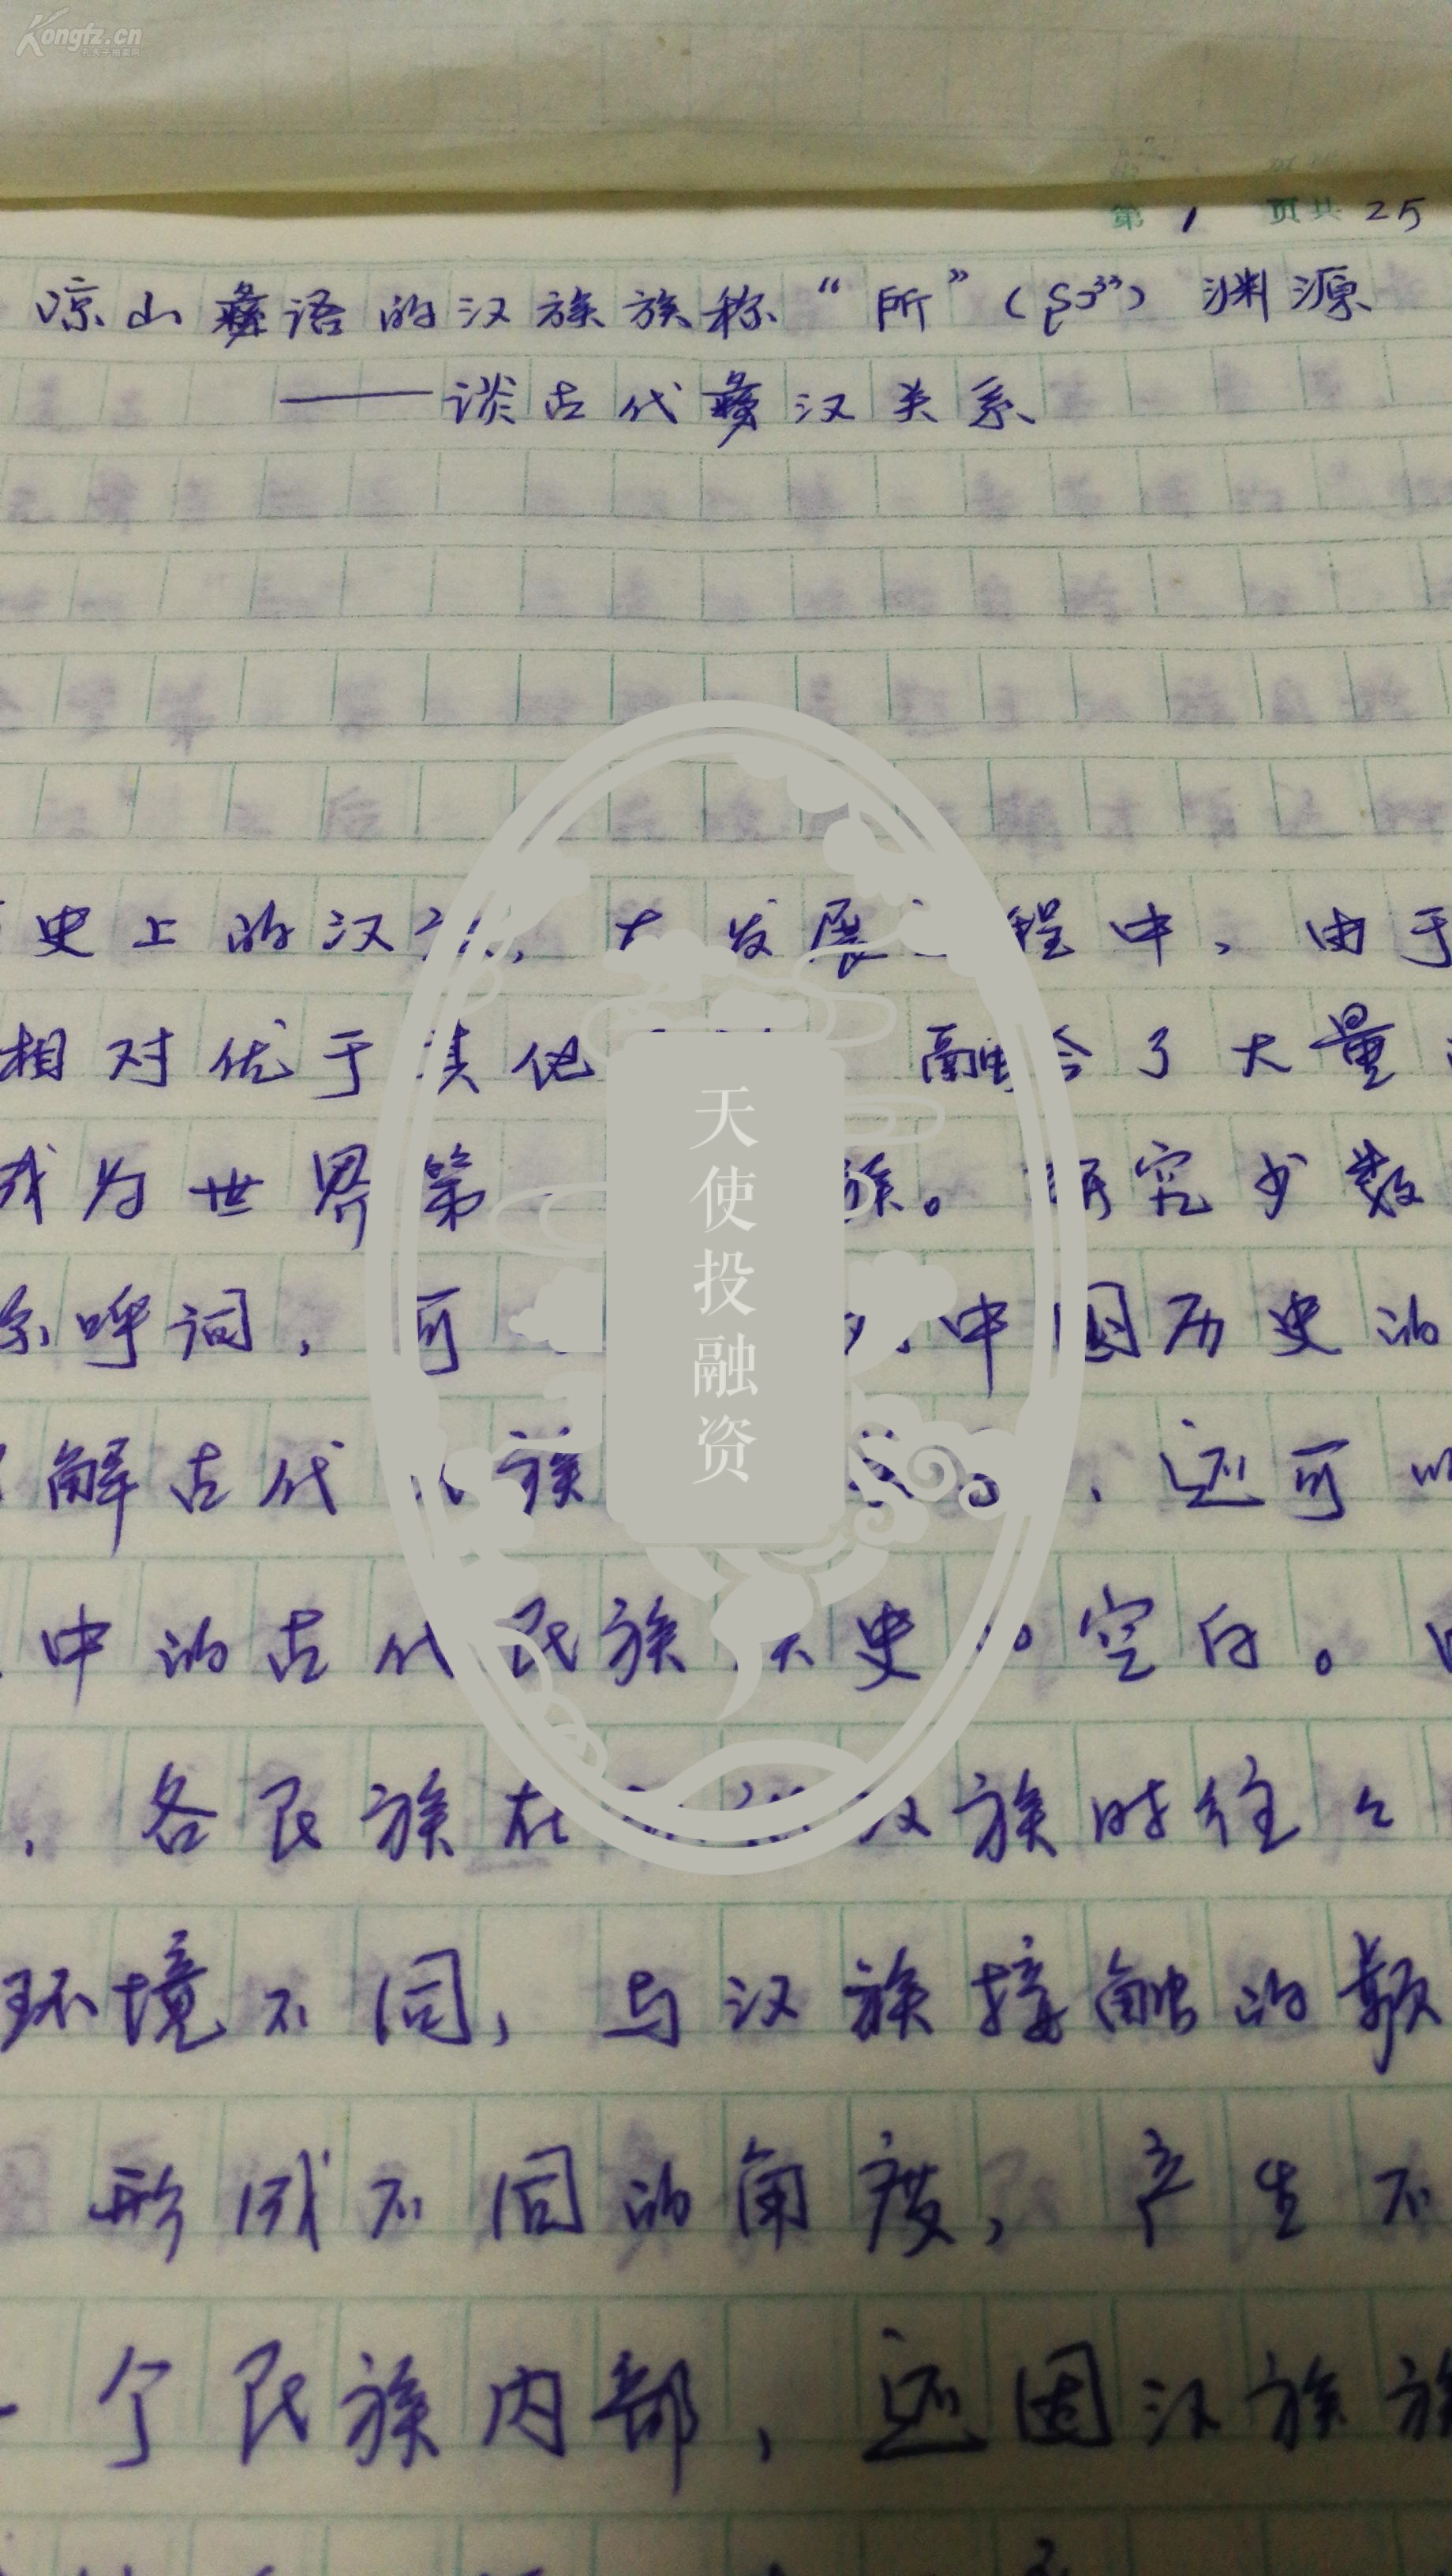 Kongfz.cn
第 1 页共 25
凉山彝语的汉族族称“所”（ʂɔ³³）渊源
——谈古代彝汉关系
史上的汉 发展 程中，由于
相对优于其他 融合了大量
成为世界第 族。研究少数
称呼词，可 中国历史的
解古代 族 ，还可以
中的古代民族历史的空白。
，各民族在 汉族时往々
环境不同，与汉族接触的
形成不同的角度，产生不
一个民族内部，还因汉族族
天使投融资